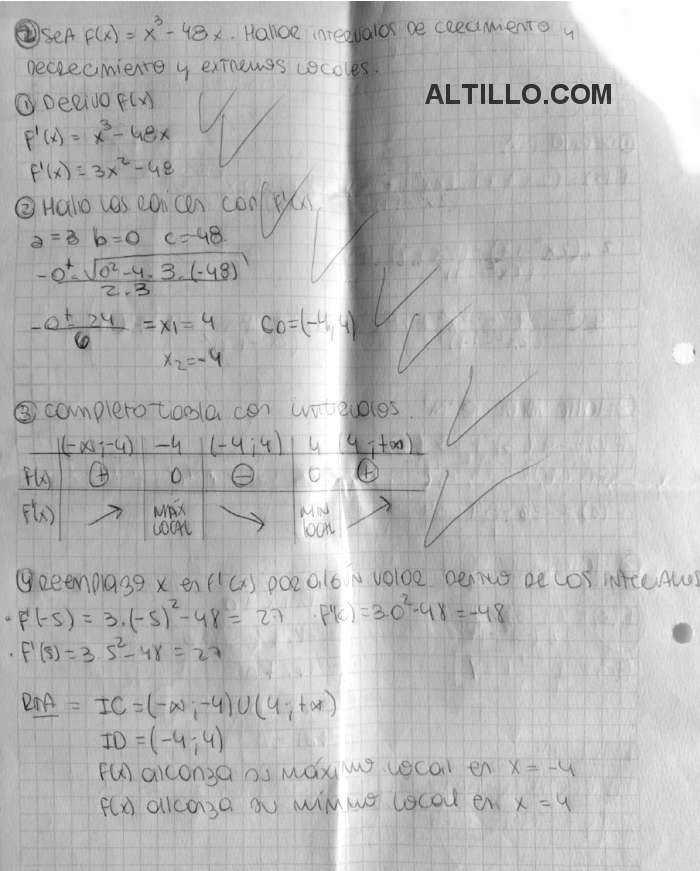 2) SEA f(x) = x³ - 48x. Hallar intervalos de crecimiento y
decrecimiento y extremos locales.
ALTILLO.COM
① Derivo f(x)
f'(x) = x³ - 48x
f'(x) = 3x² - 48
② Hallo las raíces con f'(x)
a = 3 b = 0 c = -48
-0 ± √0² - 4 . 3 . (-48)
2 . 3
-0 ± 24 = x1 = 4 C0 = (-4, 4)
6
x2 = -4
③ completo tabla con intervalos.
(-∞; -4) -4 (-4; 4) 4 (4; +∞)
f(x) + 0 - 0 +
f'(x) ↗ MÁX LOCAL ↘ MIN LOCAL ↗
④ Reemplazo x en f'(x) por algún valor dentro de los intervalos
· f'(-5) = 3.(-5)² - 48 = 27 · f'(0) = 3.0² - 48 = -48
· f'(5) = 3.5² - 48 = 27
RTA = IC = (-∞; -4) U (4; +∞)
ID = (-4; 4)
f(x) alcanza su máximo local en x = -4
f(x) alcanza su mínimo local en x = 4